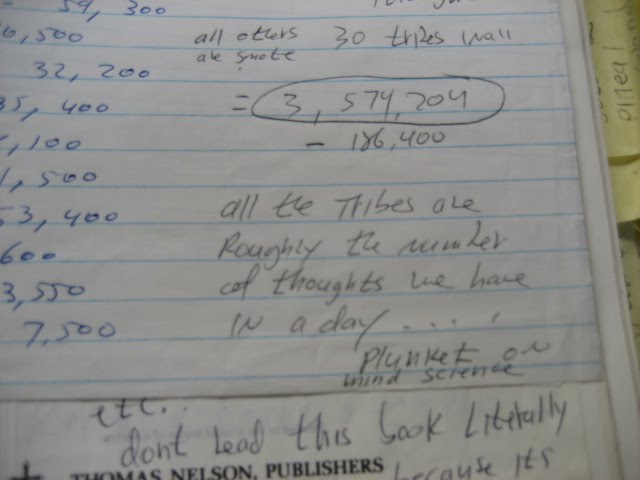 59, 300
6,500 all others 30 tribes wall
are quote
32, 200
35, 400 = 3, 574,204
,100 - 186,400
1,500
53, 400 all the Tribes are
600 Roughly the number
3,550 of thoughts we have
7,500 IN a day . . . .
Plunket on
mind science
etc..
dont Lead this book Literally
THOMAS NELSON, PUBLISHERS because its
pineal